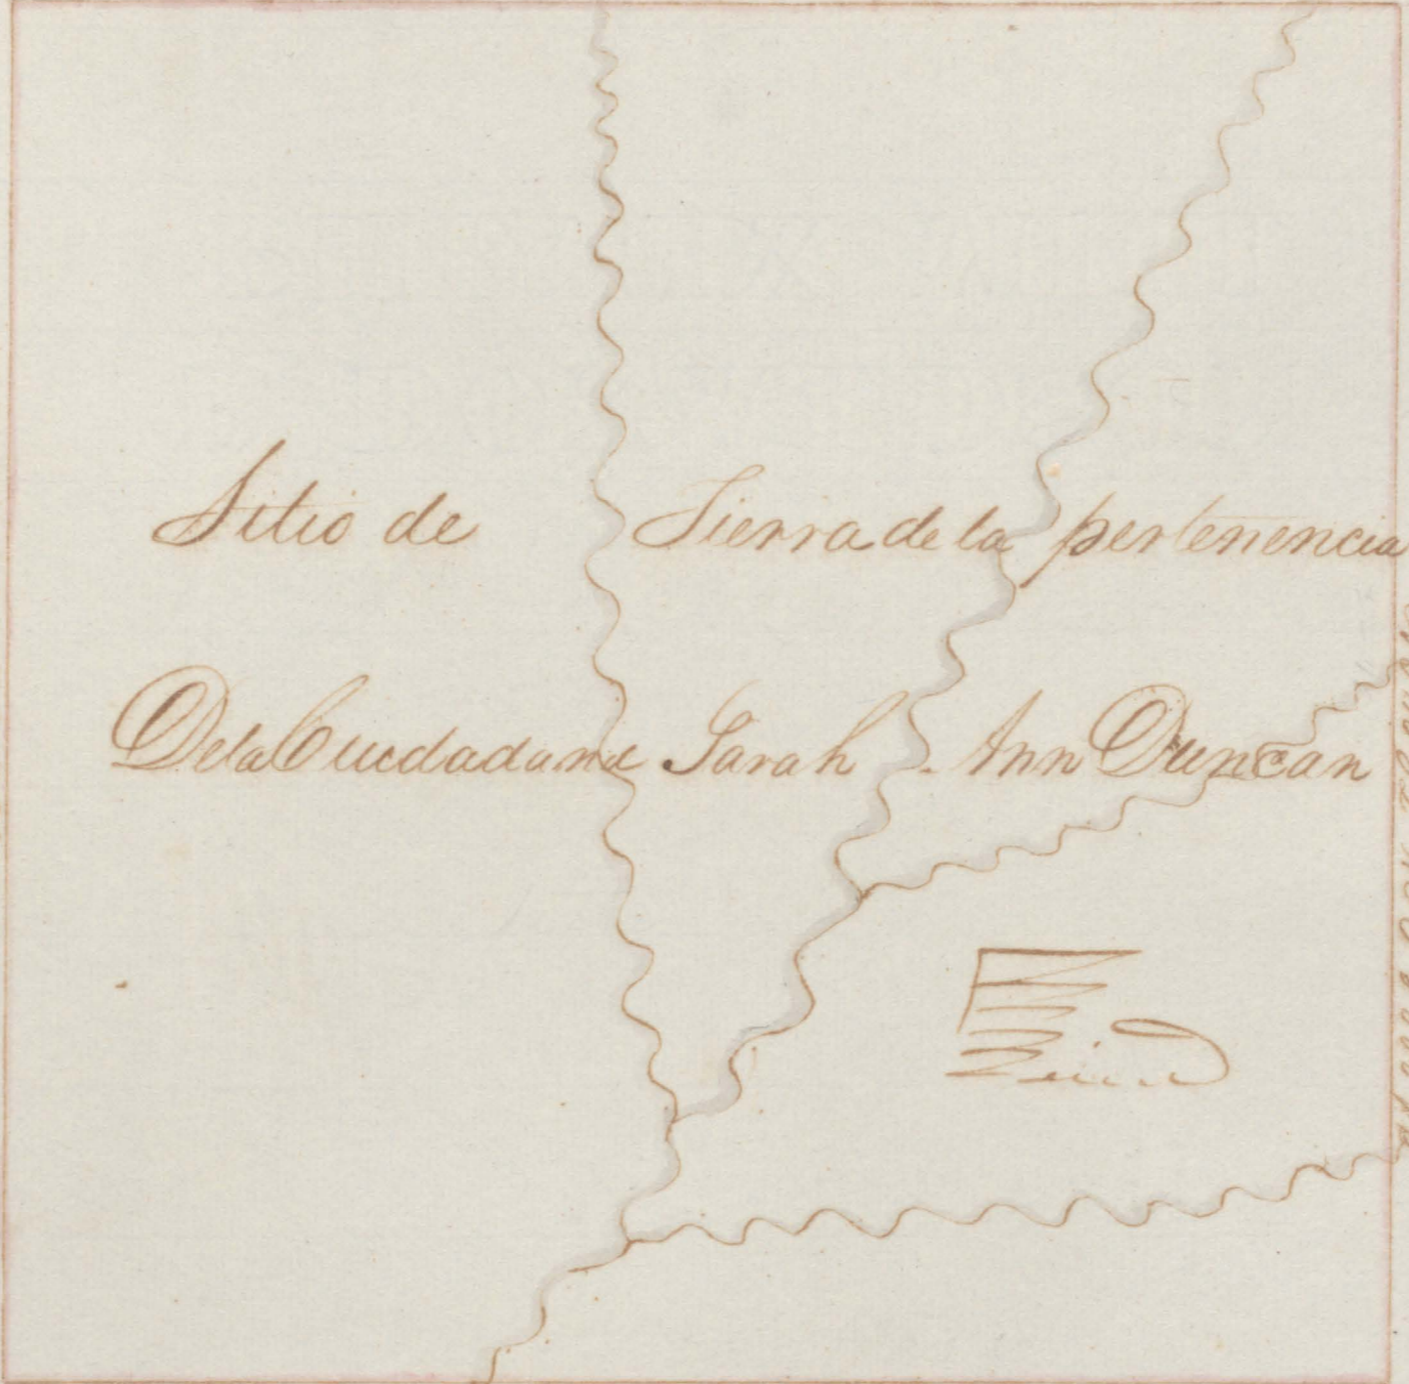 Sitio de Tierra de la pertenencia
De la Ciudadana Sarah Ann Duncan